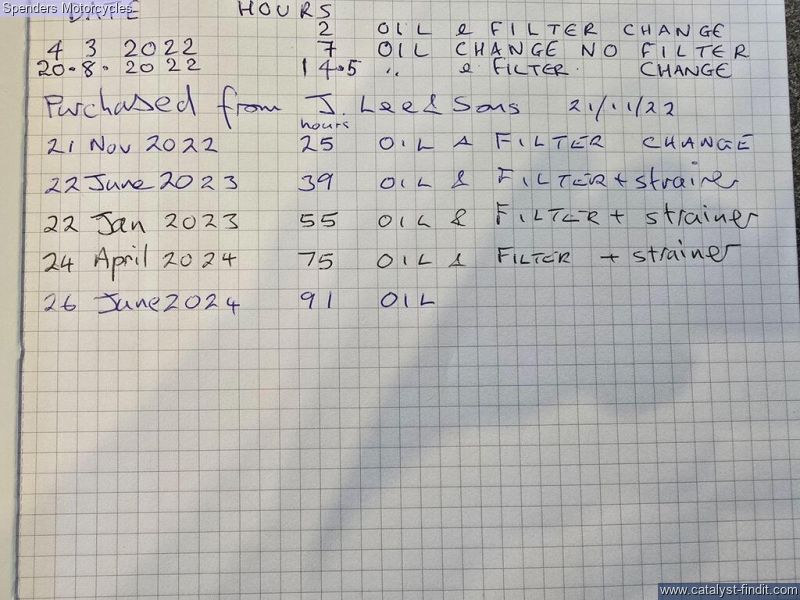 Spenders Motorcycles
DATE HOURS
2 OIL & FILTER CHANGE
4 3 2022 7 OIL CHANGE NO FILTER
20.8.2022 14.5 " & FILTER. CHANGE
Purchased from J. Lee & Sons 21/11/22
hours
21 Nov 2022 25 OIL & FILTER CHANGE
22 June 2023 39 OIL & FILTER + strainer
22 Jan 2023 55 OIL & FILTER + strainer
24 April 2024 75 OIL & FILTER + strainer
26 June 2024 91 OIL
www.catalyst-findit.com